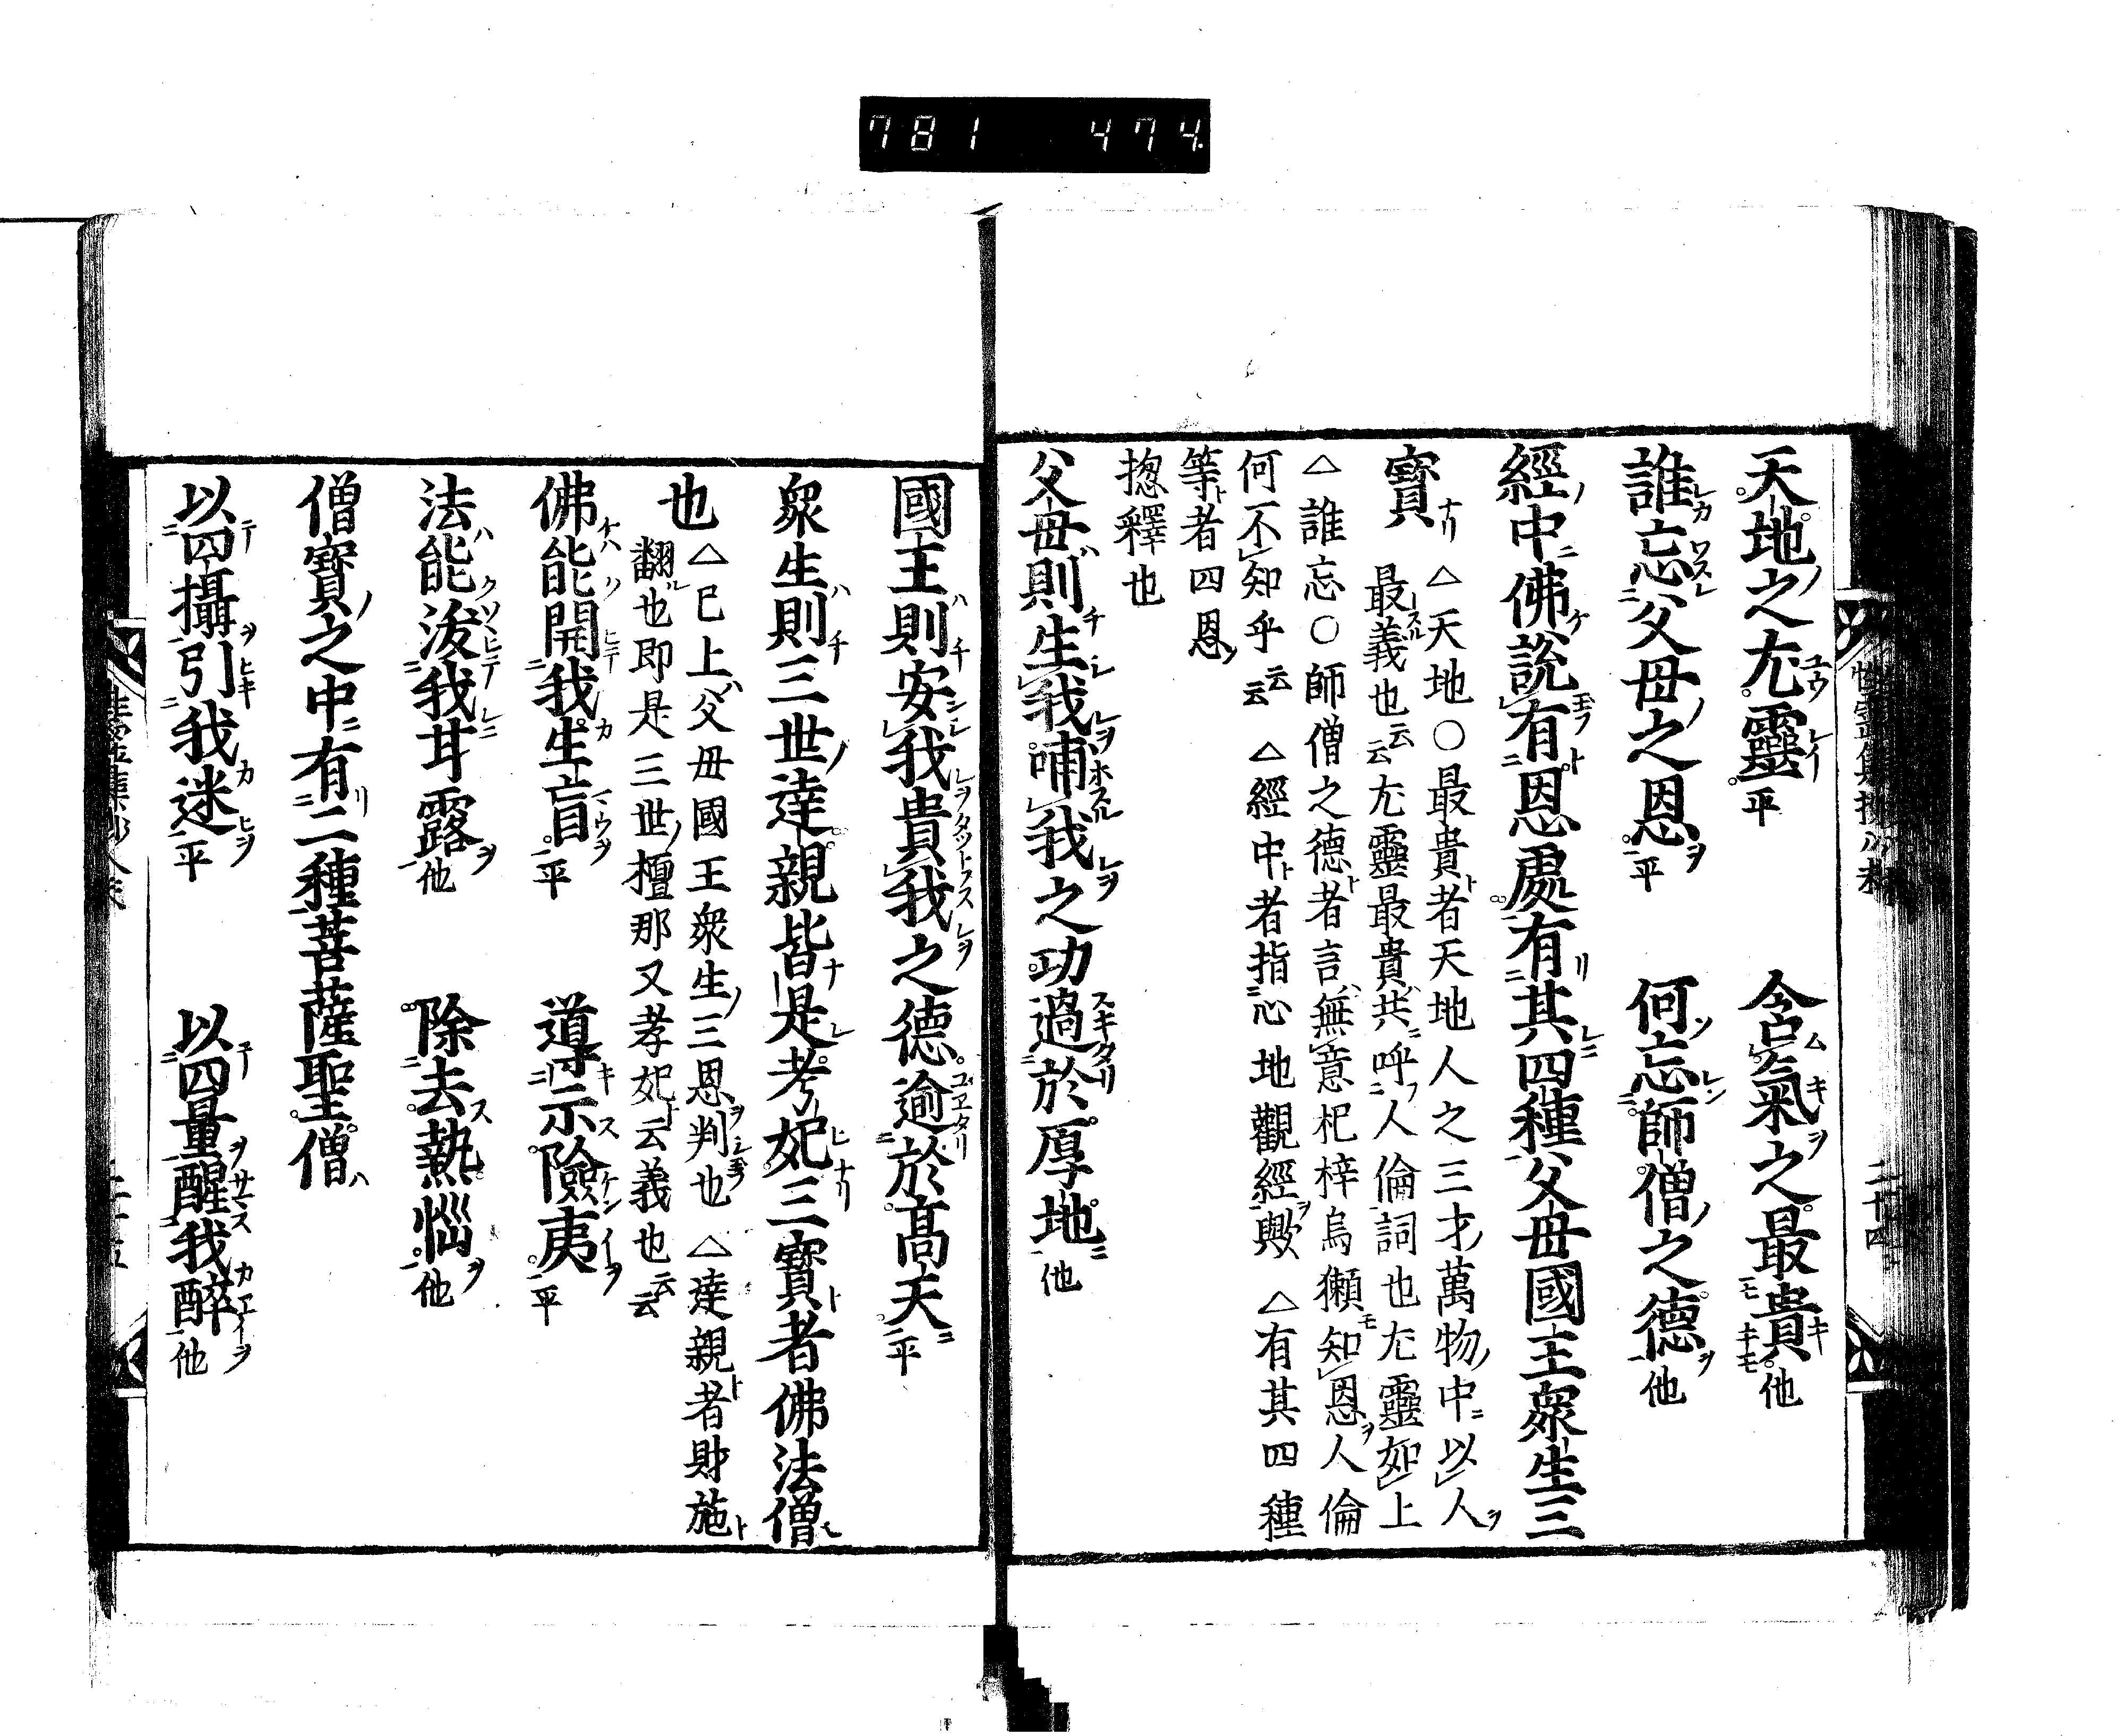 781 474
天地之尤靈平 含氣之最貴他
誰忘父母之恩平 何忘師僧之德他
經中佛說有恩處有其四種父母國王衆生三
寶 △天地○最貴者天地人之三才萬物中以人
最義也云云尤靈最貴共呼人倫詞也尤靈如上
△誰忘○師僧之德者言無意杷梓烏獺知恩人倫
何不知乎云云 △經中者指心地觀經歟 △有其四種
等者四恩
揔釋也
父母則生我哺我之功過於厚地他
國王則安我貴我之德逾於高天平
衆生則三世達親皆是考妣三寶者佛法僧
也 △已上父母國王衆生三恩判也 △達親者財施
翻也即是三世檀那又孝妃云義也云云
佛能開我生盲平 導示險夷平
法能浚我甘露他 除去熱惱他
僧寶之中有二種菩薩聖僧
以四攝引我迷平 以四量醒我醉他